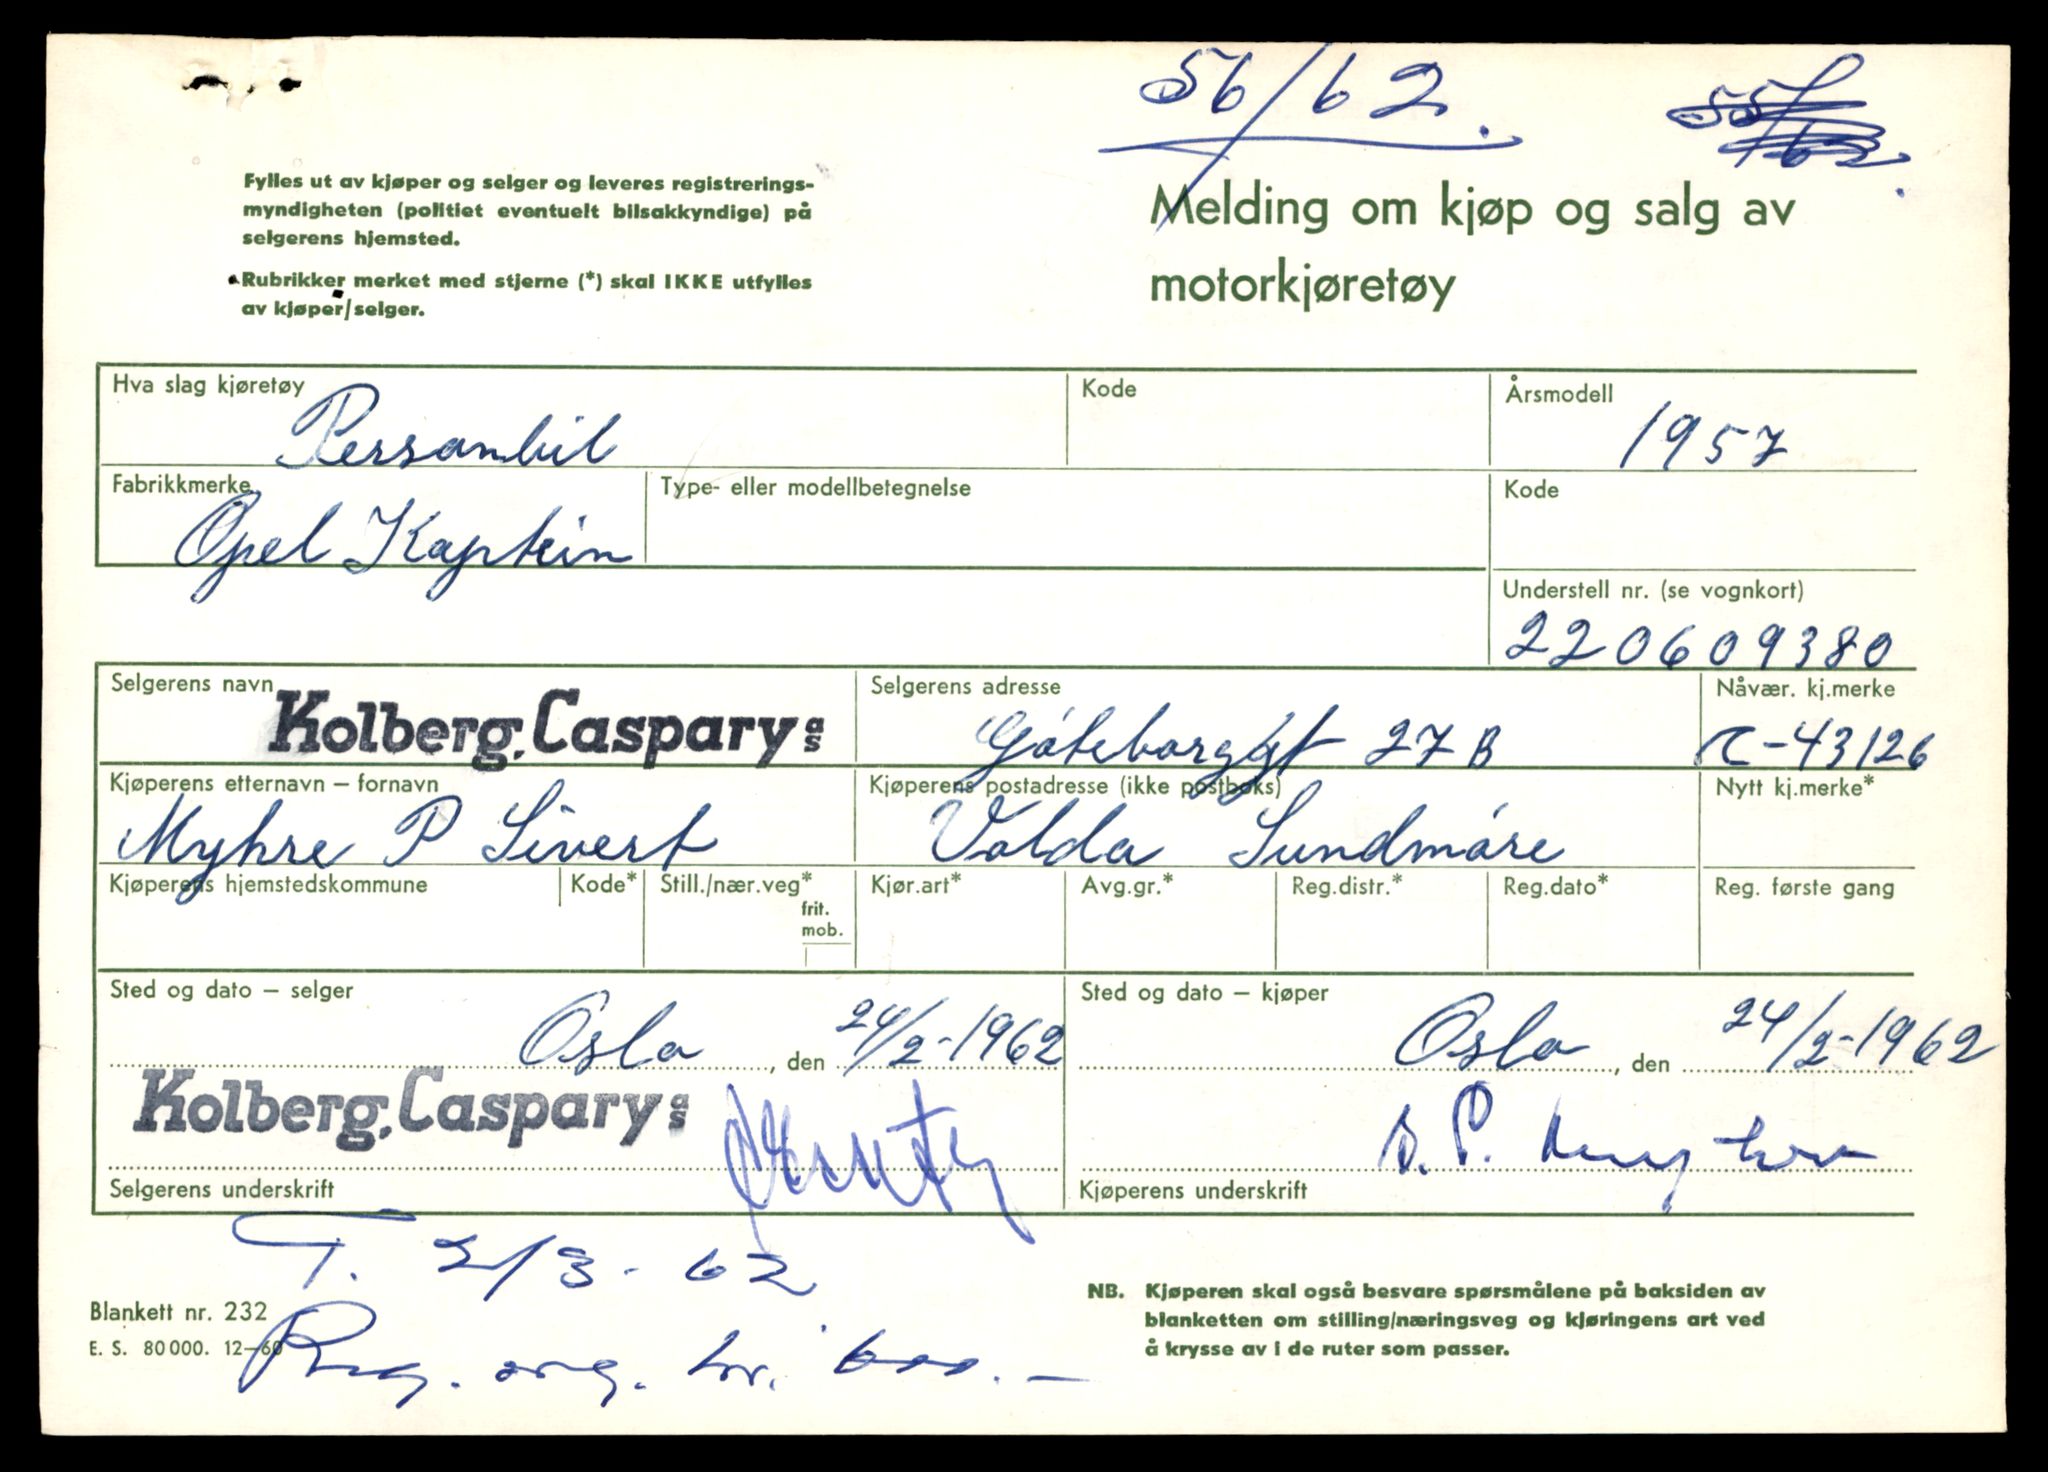 56/62.
55/62.
Fylles ut av kjøper og selger og leveres registrerings-
myndigheten (politiet eventuelt bilsakkyndige) på
selgerens hjemsted.
Rubrikker merket med stjerne (*) skal IKKE utfylles
av kjøper/selger.
Melding om kjøp og salg av
motorkjøretøy
Hva slag kjøretøy
Personbil
Kode
Årsmodell
1957
Fabrikkmerke
Opel Kaptein
Type- eller modellbetegnelse
Kode
Understell nr. (se vognkort)
220609380
Selgerens navn
Kolberg, Caspary as
Selgerens adresse
Gøteborggt 27 B
Nåvær. kj.merke
C-43126
Kjøperens etternavn – fornavn
Myhre P Sivert
Kjøperens postadresse (ikke postboks)
Volda Sundmøre
Nytt kj.merke*
Kjøperens hjemstedskommune
Kode*
Still./nær.veg*
frit.
mob.
Kjør.art*
Avg.gr.*
Reg.distr.*
Reg.dato*
Reg. første gang
Sted og dato – selger
Oslo, den 24/2-1962
Sted og dato – kjøper
Oslo, den 24/2-1962
Kolberg, Caspary as
Selgerens underskrift
S. P. Myhre
Kjøperens underskrift
T. 2/3-62
Blankett nr. 232
E. S. 80 000. 12–60
NB. Kjøperen skal også besvare spørsmålene på baksiden av
blanketten om stilling/næringsveg og kjøringens art ved
å krysse av i de ruter som passer.